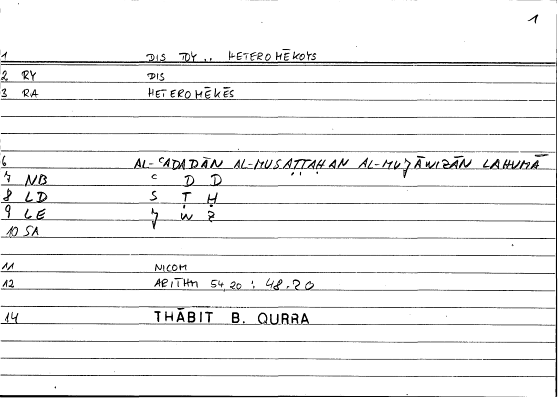 1
1 DIS TOY .. HETEROMĒKOYS
2 RY DIS
3 RA HETEROMĒKĒS
6 AL-ʿADADĀN AL-MUSAṬṬAḤAN AL-MUǦĀWIZĀN LAHUMĀ
7 NB ʿ D D
8 LD S Ṭ Ḥ
9 LE Ǧ W Z
10 SA
11 NICOM
12 ARITHM 54,20 : 48.20
14 THĀBIT B. QURRA